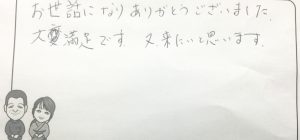 お世話になりありがとうございました。
大変満足です。又来たいと思います。